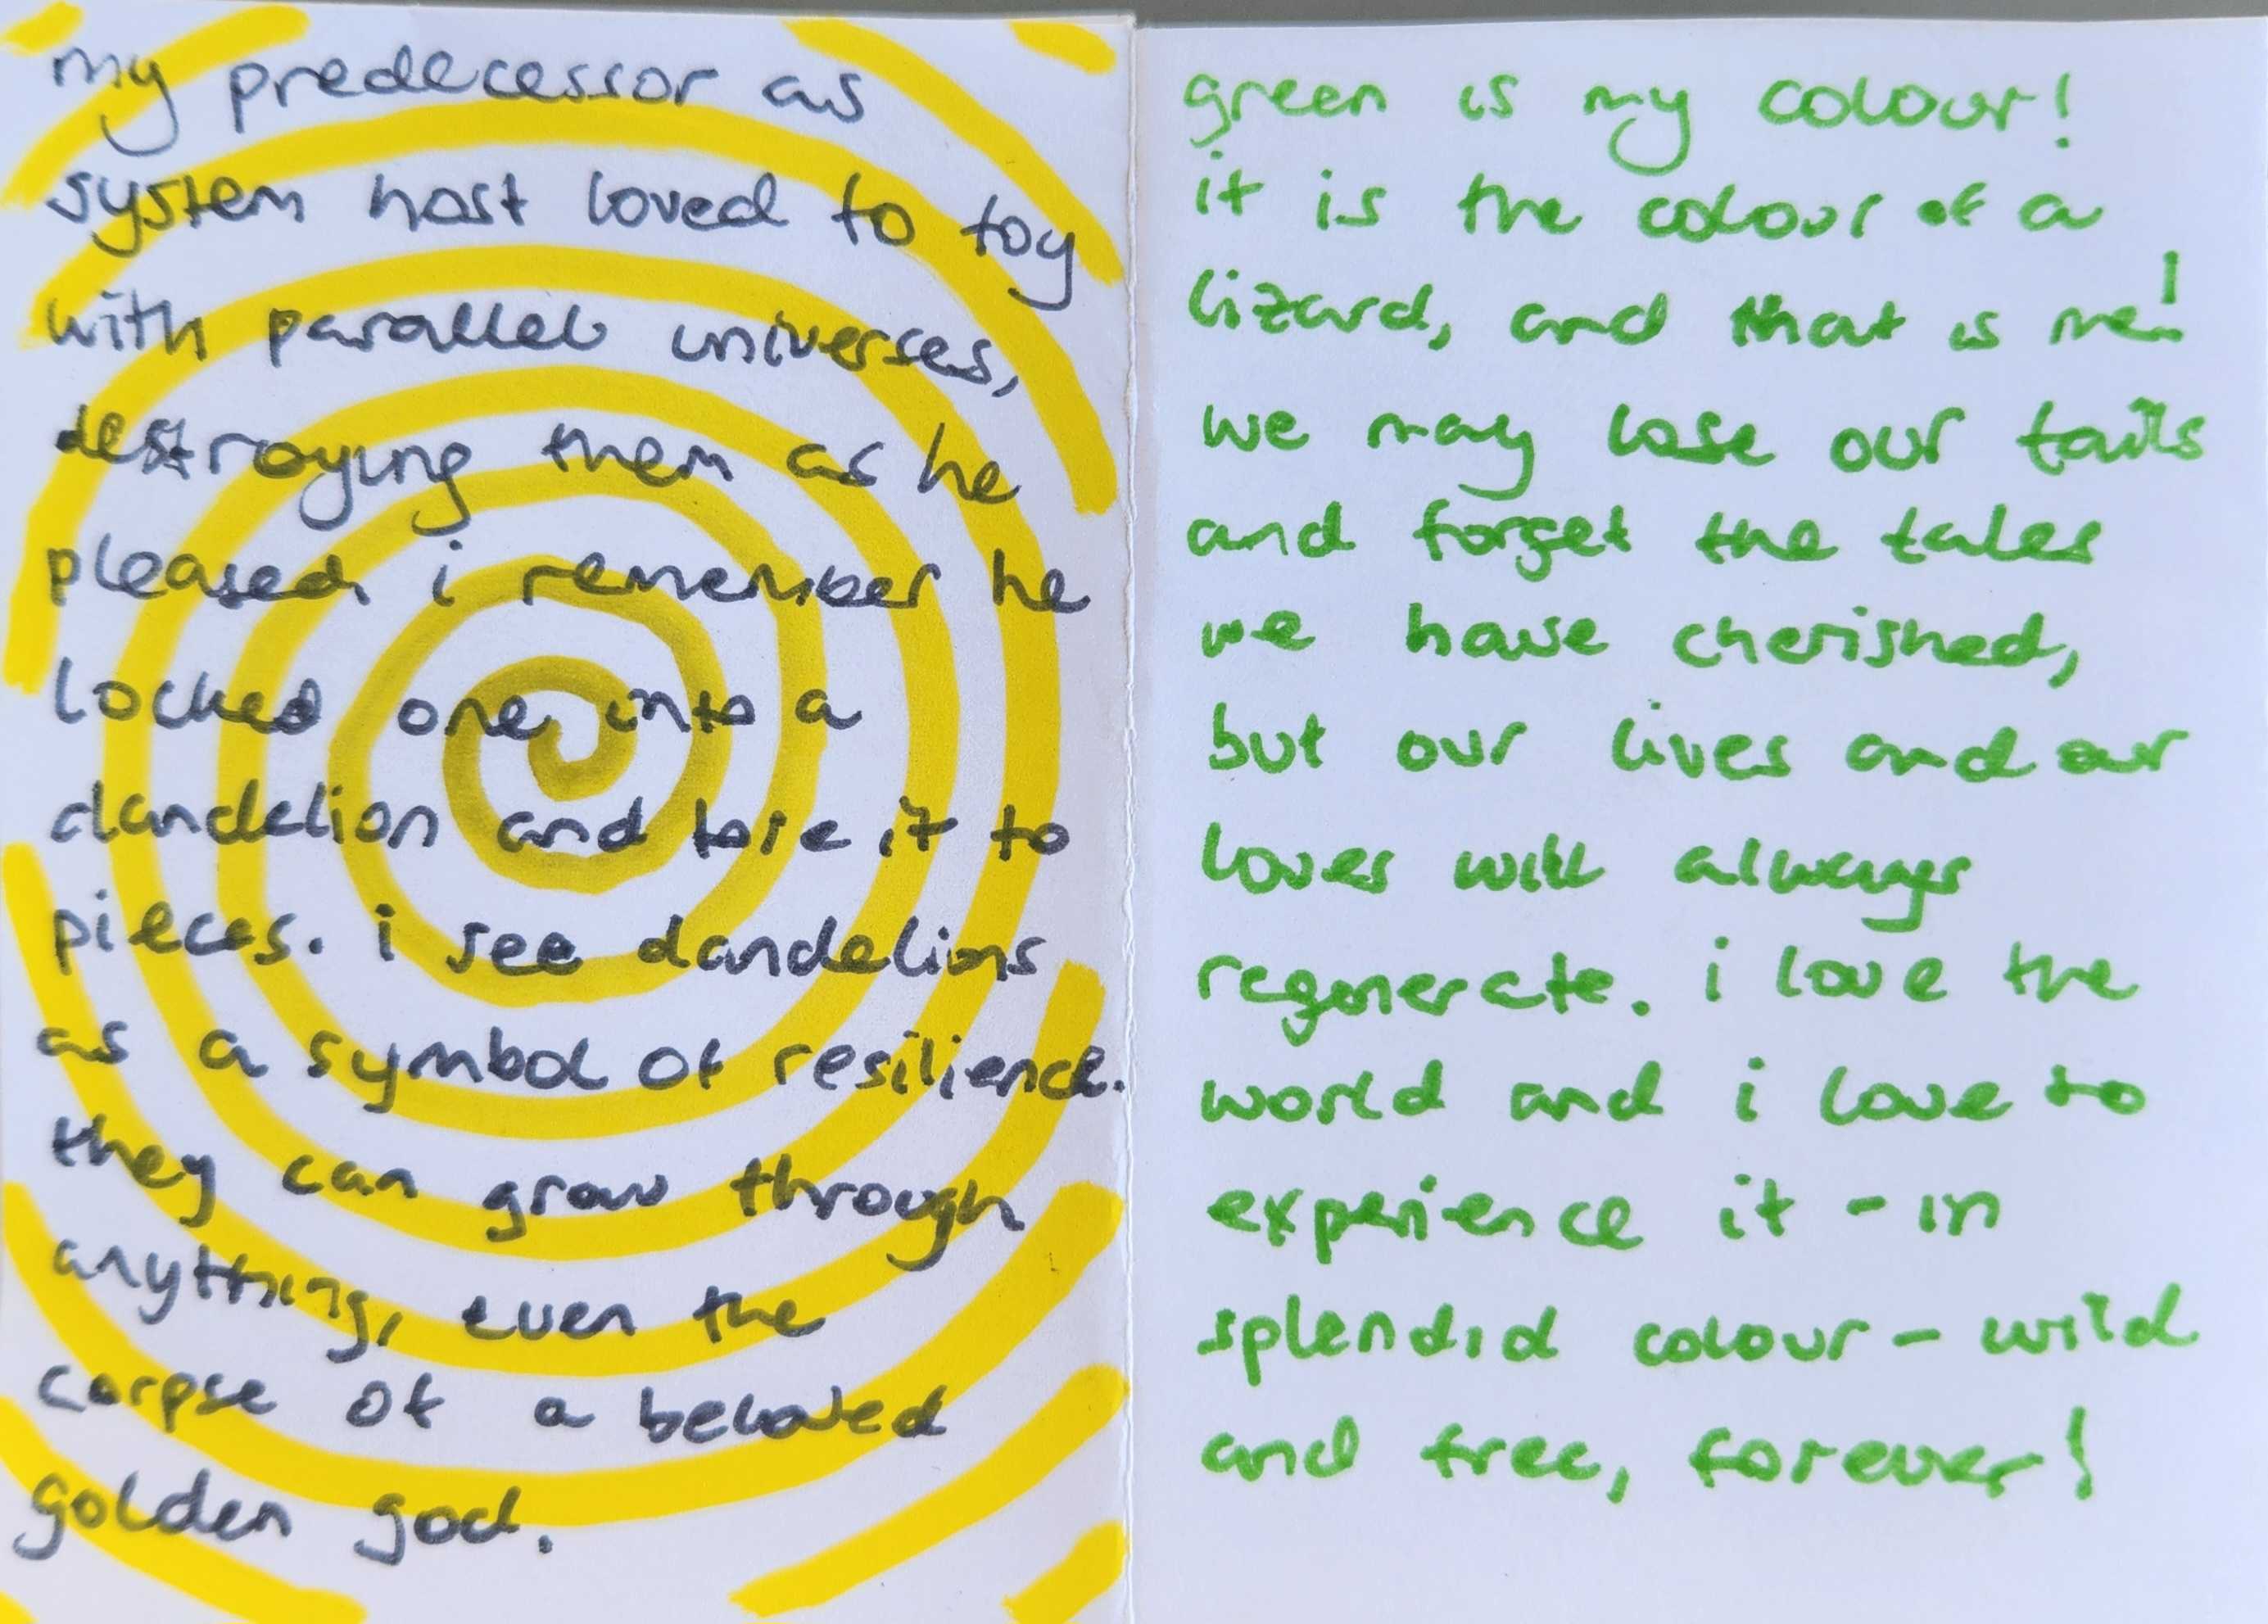 my predecessor as
system host loved to toy
with parallel universes,
destroying them as he
pleased. i remember he
locked one into a
dandelion and tore it to
pieces. i see dandelions
as a symbol of resilience.
they can grow through
anything, even the
corpse of a beloved
golden god.
green is my colour!
it is the colour of a
lizard, and that is me!
we may lose our tails
and forget the tales
we have cherished,
but our lives and our
loves will always
regenerate. i love the
world and i love to
experience it - in
splendid colour - wild
and free, forever!